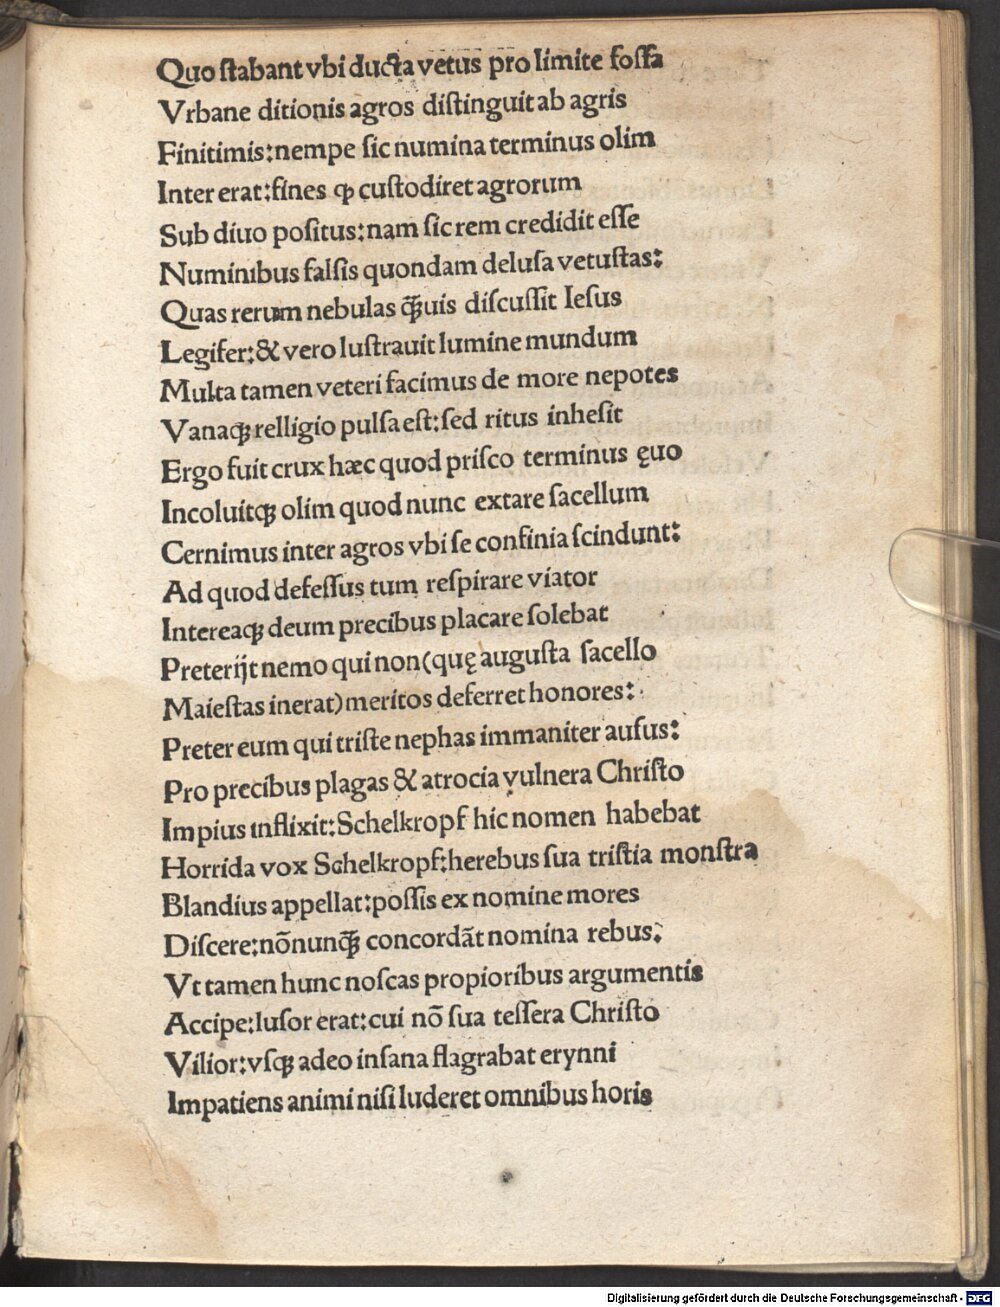 Quo ſtabant vbi ducta vetus pro limite foſſa
Vrbane ditionis agros diſtinguit ab agris
Finitimis:nempe ſic numina terminus olim
Inter erat:fines ꝙ cuſtodiret agrorum
Sub diuo poſitus:nam ſic rem credidit eſſe
Numinibus falſis quondam deluſa vetuſtas:
Quas rerum nebulas q̃ꝫuis diſcuſſit Ieſus
Legifer:& vero luſtrauit lumine mundum
Multa tamen veteri facimus de more nepotes
Vanaqꝫ relligio pulſa eſt:ſed ritus inheſit
Ergo fuit crux hæc quod priſco terminus ęuo
Incoluitqꝫ olim quod nunc extare ſacellum
Cernimus inter agros vbi ſe confinia ſcindunt:
Ad quod defeſſus tum reſpirare viator
Intereaqꝫ deum precibus placare ſolebat
Preterijt nemo qui non(quę auguſta ſacello
Maieſtas inerat)meritos deferret honores:
Preter eum qui triſte nephas immaniter auſus:
Pro precibus plagas & atrocia vulnera Chriſto
Impius inflixit:Schelkropf hic nomen habebat
Horrida vox Schelkropf:herebus ſua triſtia monſtra
Blandius appellat:poſſis ex nomine mores
Diſcere:nõnunq̃ꝫ concordãt nomina rebus:
Vt tamen hunc noſcas propioribus argumentis
Accipe:luſor erat:cui nõ ſua teſſera Chriſto
Vilior:vſqꝫ adeo inſana flagrabat erynni
Impatiens animi niſi luderet omnibus horis
Digitalisierung gefördert durch die Deutsche Forschungsgemeinschaft - DFG